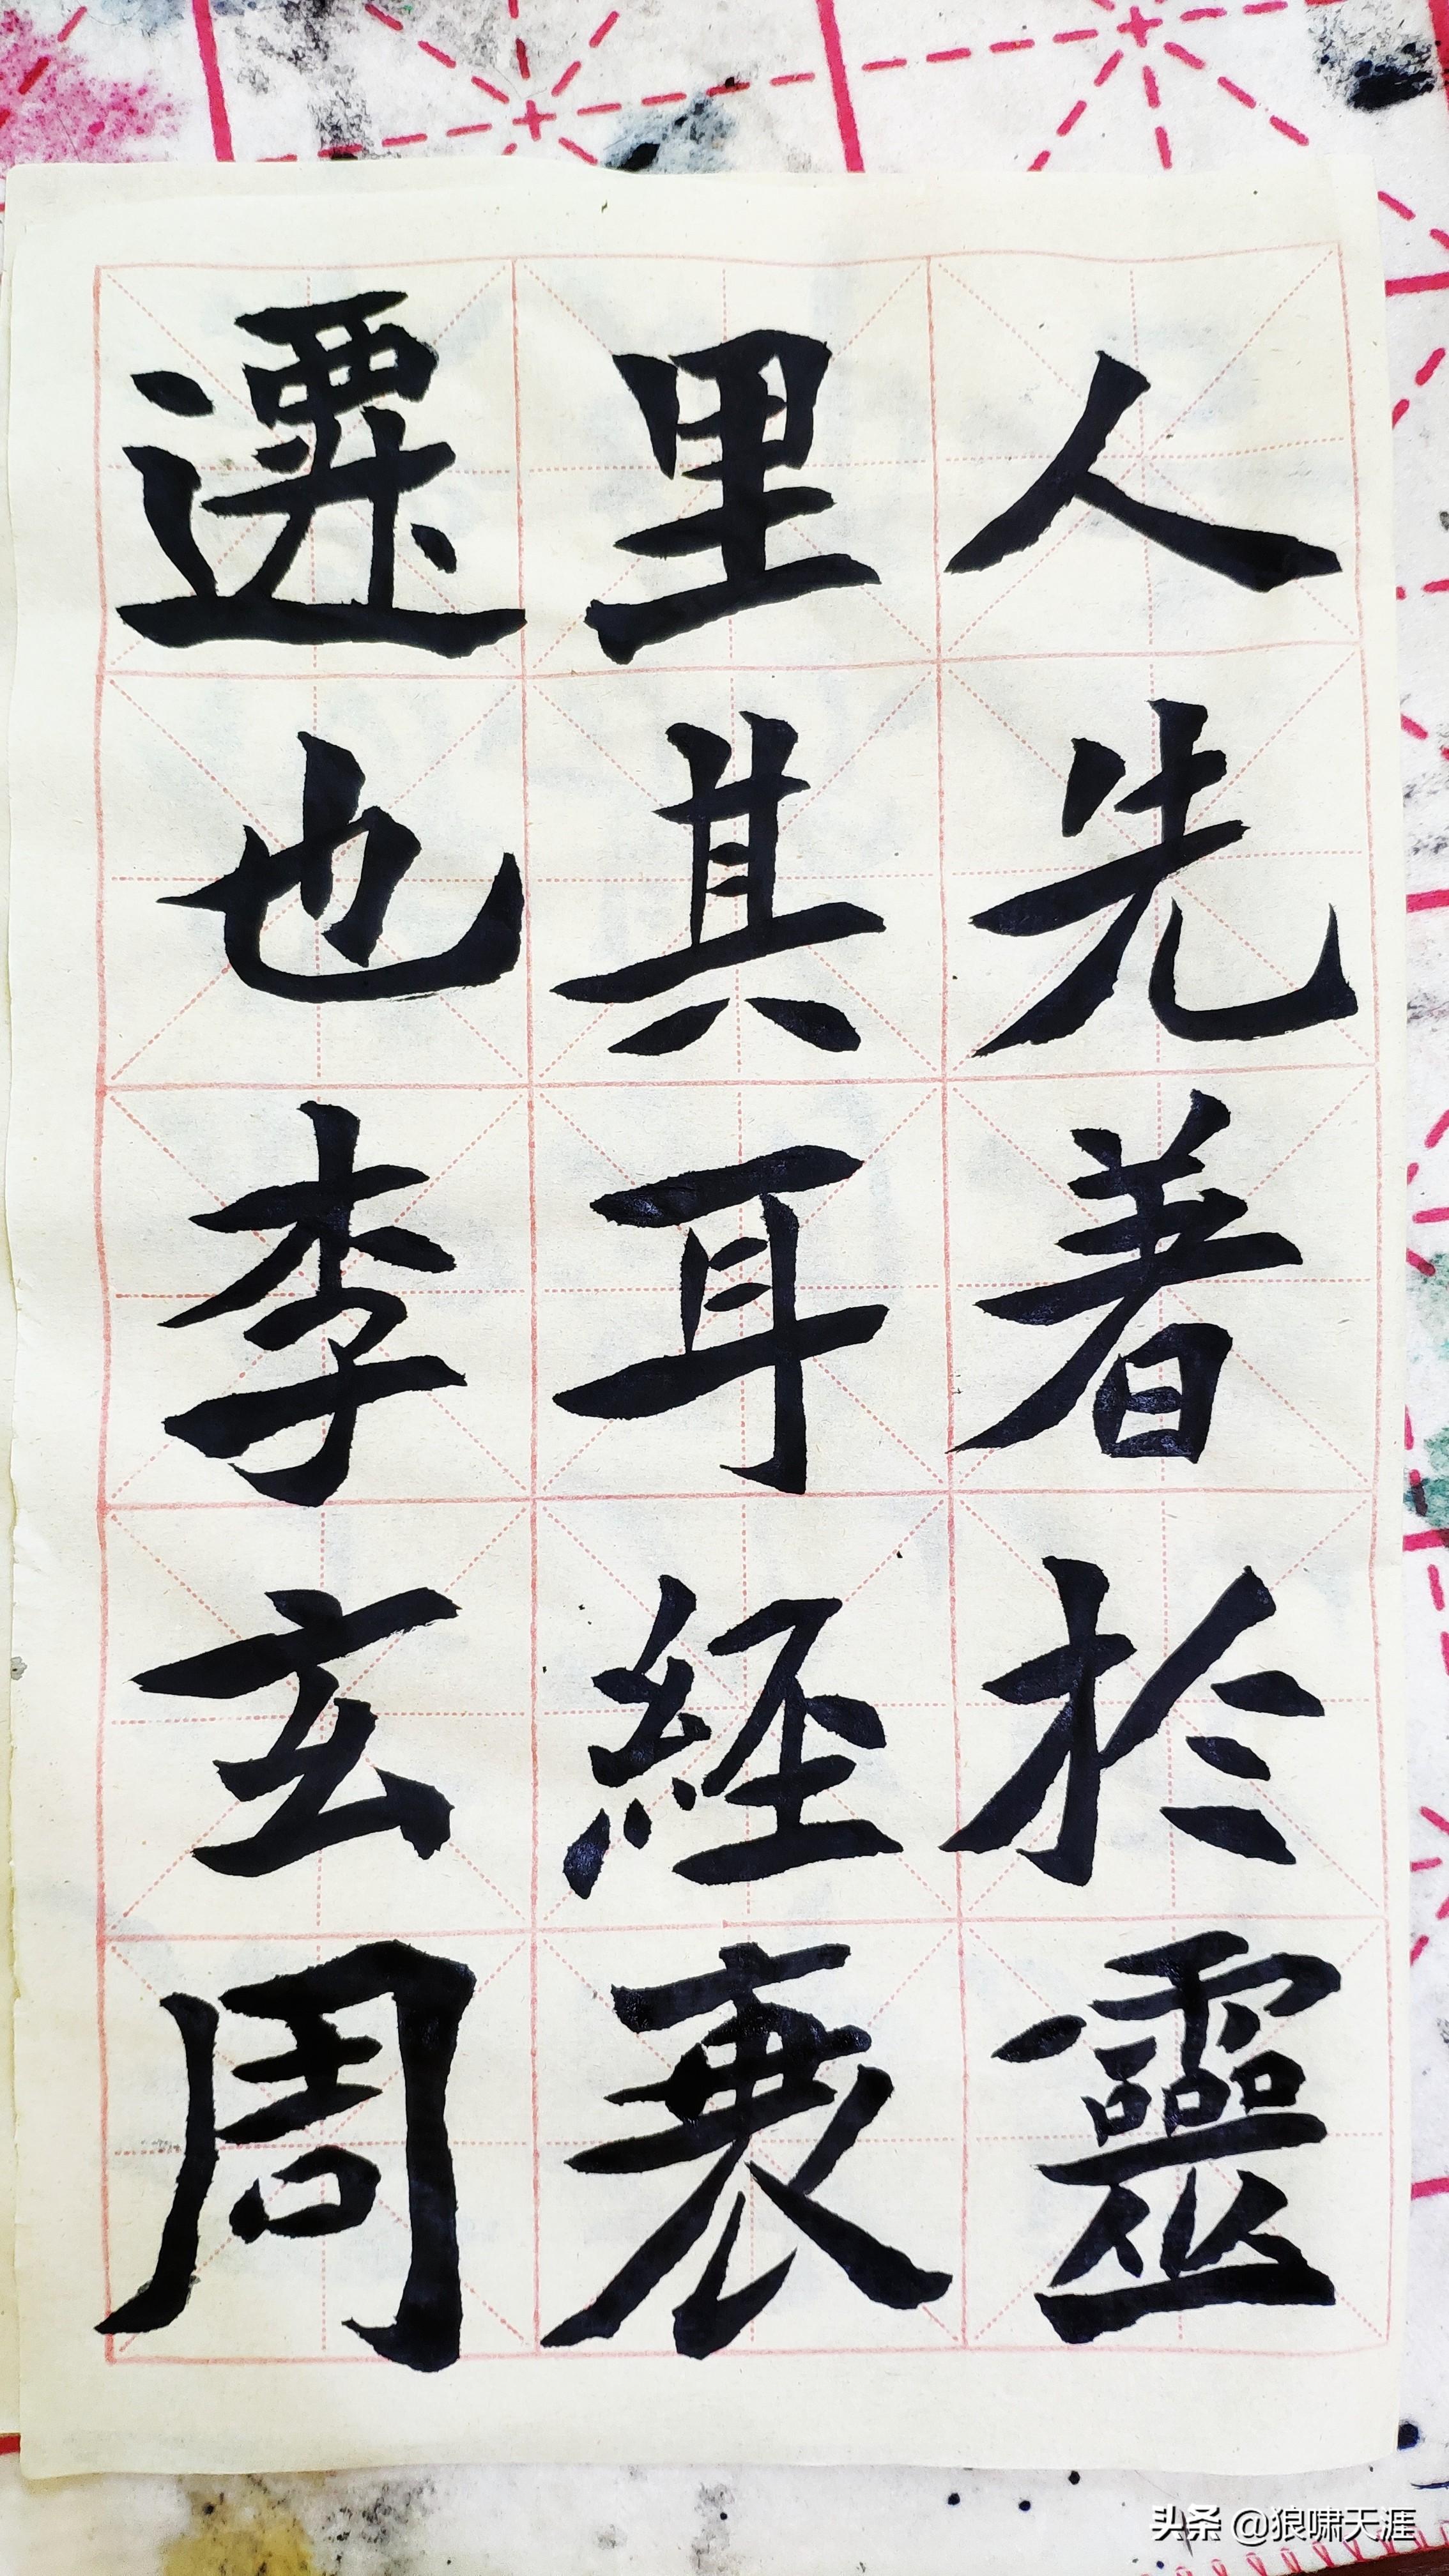 人先著於靈
里其耳經裹
遷也李玄周
头条 @狼啸天涯